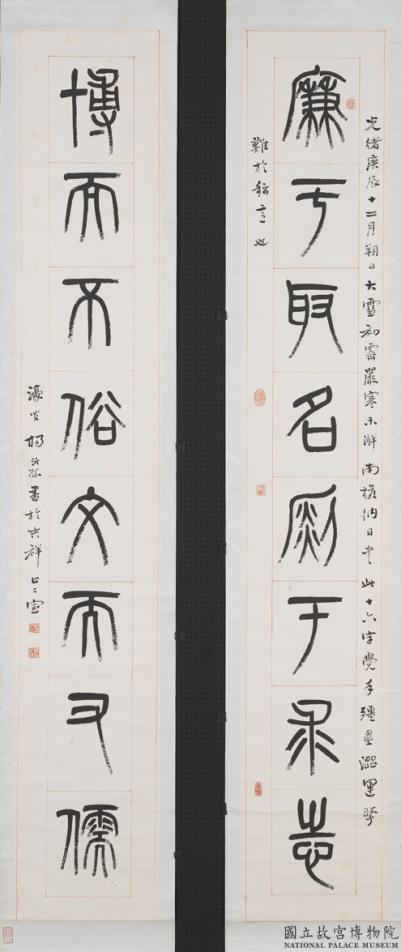 廉于取名銳于求志
光緒庚辰十二月朔日大雪初霽嚴寒未解南檐納日書此十六字覺手殭墨澀運
難於稱意也
博而不俗文而又儒
濠叟楊沂孫書於吉祥止止室
國立故宮博物院
NATIONAL PALACE MUSEUM